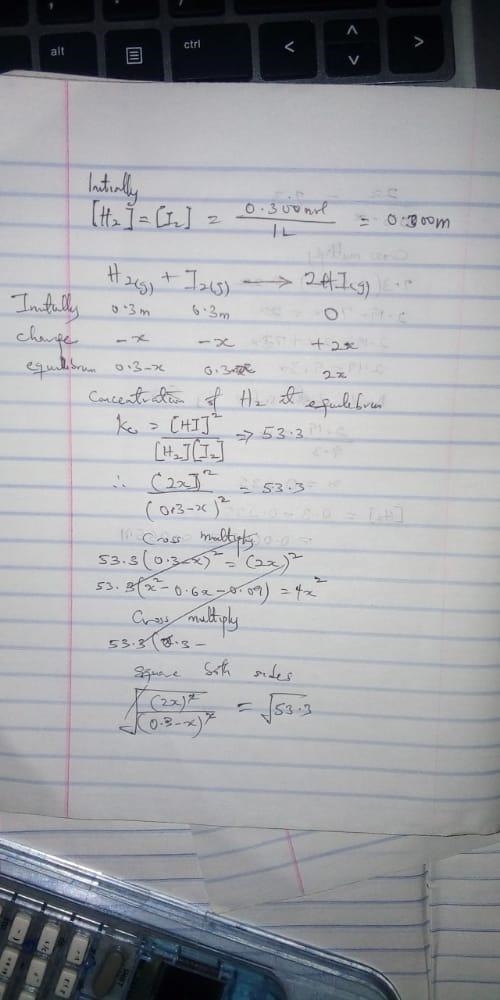 alt
ctrl
<
^
v
>
Initially
[H₂] = [I₂] = 0.300mol / 1L = 0.300m
H₂(g) + I₂(g) → 2HI(g)
Initially 0.3m 0.3m 0
change -x -x +2x
equilibrum 0.3-x 0.3-x 2x
Concentration of H₂ at equilibrum
Kc = [HI]² / [H₂][I₂] => 53.3
∴ (2x)² / (0.3-x)² = 53.3
Cross multiply
53.3(0.3-x)² = (2x)²
53.3(x² - 0.6x - 0.09) = 4x²
Cross multiply
53.3(0.3-
square both sides
√(2x)² / √(0.3-x)² = √53.3